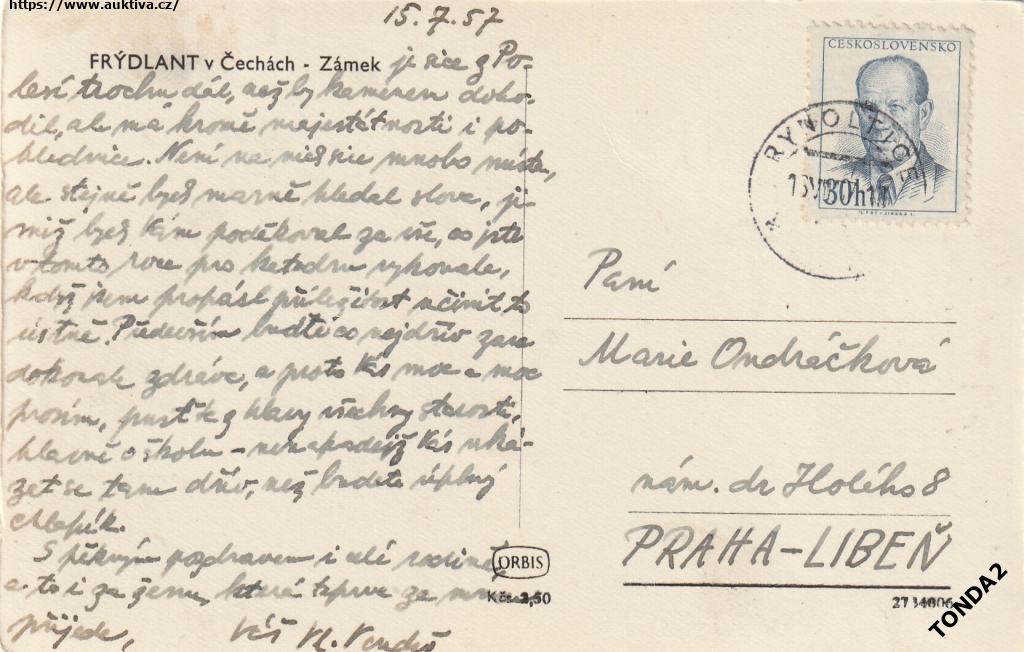 https://www.auktiva.cz/
15.7.57
FRÝDLANT v Čechách - Zámek je sice z Po-
lesí trochu dál, než by kamenem doho-
dil, ale má kromě majestátnosti i po-
hlednice. Není na nich sice mnoho místa,
ale stejně bych marně hledal slova, ji-
miž bych Vám poděkoval za vše, co jste
v tomto roce pro katedru vykonala,
když jsem propásl příležitost učinit to
ústně. Především buďte co nejdřív zase
dokonale zdráva, a proto Vás moc a moc
prosím, pusťte z hlavy všechny starosti,
hlavně o školu - nenapadejž Vás uká-
zat se tam dřív, než budete úplný
chlapík.
S pěkným pozdravem i celé rodině
a to i za ženu, která teprve za
přijede, Váš Vl.
ČESKOSLOVENSKO
30h
RYNOLTICE
Paní
Marie Ondráčková
nám. dr Holého 8
PRAHA-LIBEŇ
ORBIS
Kčs 2,50
TONDA2